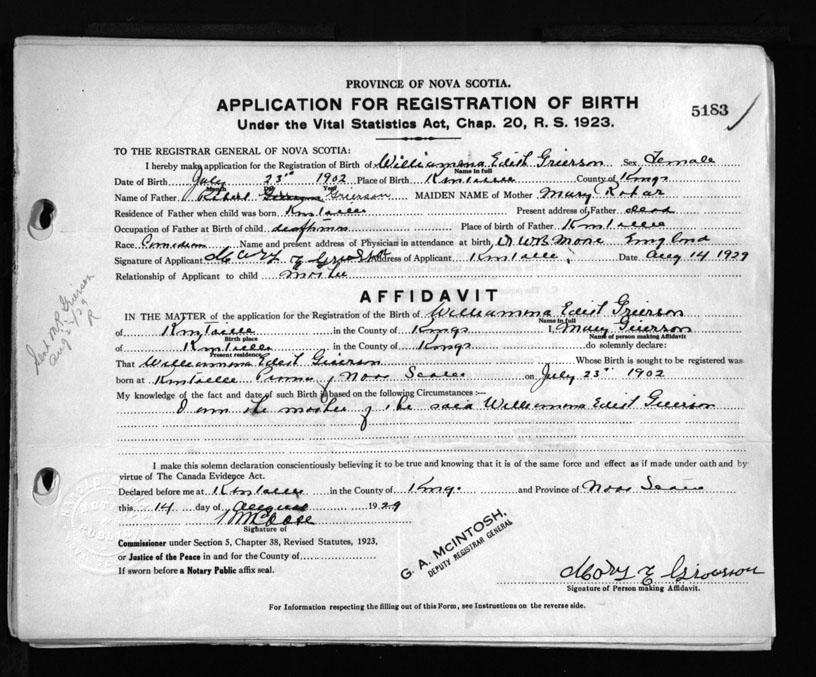 PROVINCE OF NOVA SCOTIA.
APPLICATION FOR REGISTRATION OF BIRTH
5183
Under the Vital Statistics Act, Chap. 20, R. S. 1923.
TO THE REGISTRAR GENERAL OF NOVA SCOTIA:
I hereby make application for the Registration of Birth of Williamena Edith Grierson Sex Female
Name in full
Date of Birth July 23rd 1902 Place of Birth County of Kings
Month Day
Name of Father Robert Grierson MAIDEN NAME of Mother Mary Rohar
Residence of Father when child was born Present address of Father dead
Occupation of Father at Birth of child Place of birth of Father
Race Canadian Name and present address of Physician in attendance at birth Dr W.B. Moore England
Signature of Applicant Mary E Grierson Address of Applicant Date Aug 14 1929
Relationship of Applicant to child Mother
AFFIDAVIT
IN THE MATTER of the application for the Registration of Birth of Williamena Edith Grierson
Name in full
of in the County of Kings I, Mary Grierson
Birth place Name of person making Affidavit
of in the County of Kings do solemnly declare:
Present residence
That Williamena Edith Grierson Whose Birth is sought to be registered was
born at Province of Nova Scotia on July 23rd 1902
My knowledge of the fact and date of such Birth is based on the following Circumstances :—
I am the mother of the said Williamena Edith Grierson
I make this solemn declaration conscientiously believing it to be true and knowing that it is of the same force and effect as if made under oath and by
virtue of The Canada Evidence Act.
Declared before me at in the County of Kings and Province of Nova Scotia
this 14 day of August 1929
Signature of
Commissioner under Section 5, Chapter 38, Revised Statutes, 1923,
or Justice of the Peace in and for the County of
If sworn before a Notary Public affix seal.
G. A. McINTOSH,
DEPUTY REGISTRAR GENERAL
Mary E Grierson
Signature of Person making Affidavit.
For Information respecting the filling out of this Form, see Instructions on the reverse side.